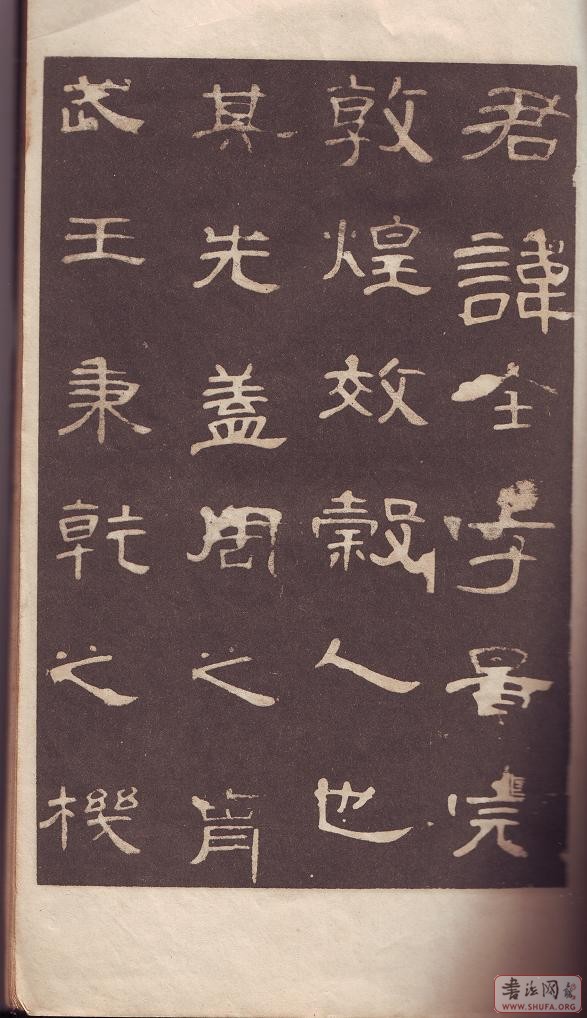 君諱全字景完
敦煌效穀人也
其先盖周之胄
武王秉乾之機
書法网
WWW.SHUFA.ORG